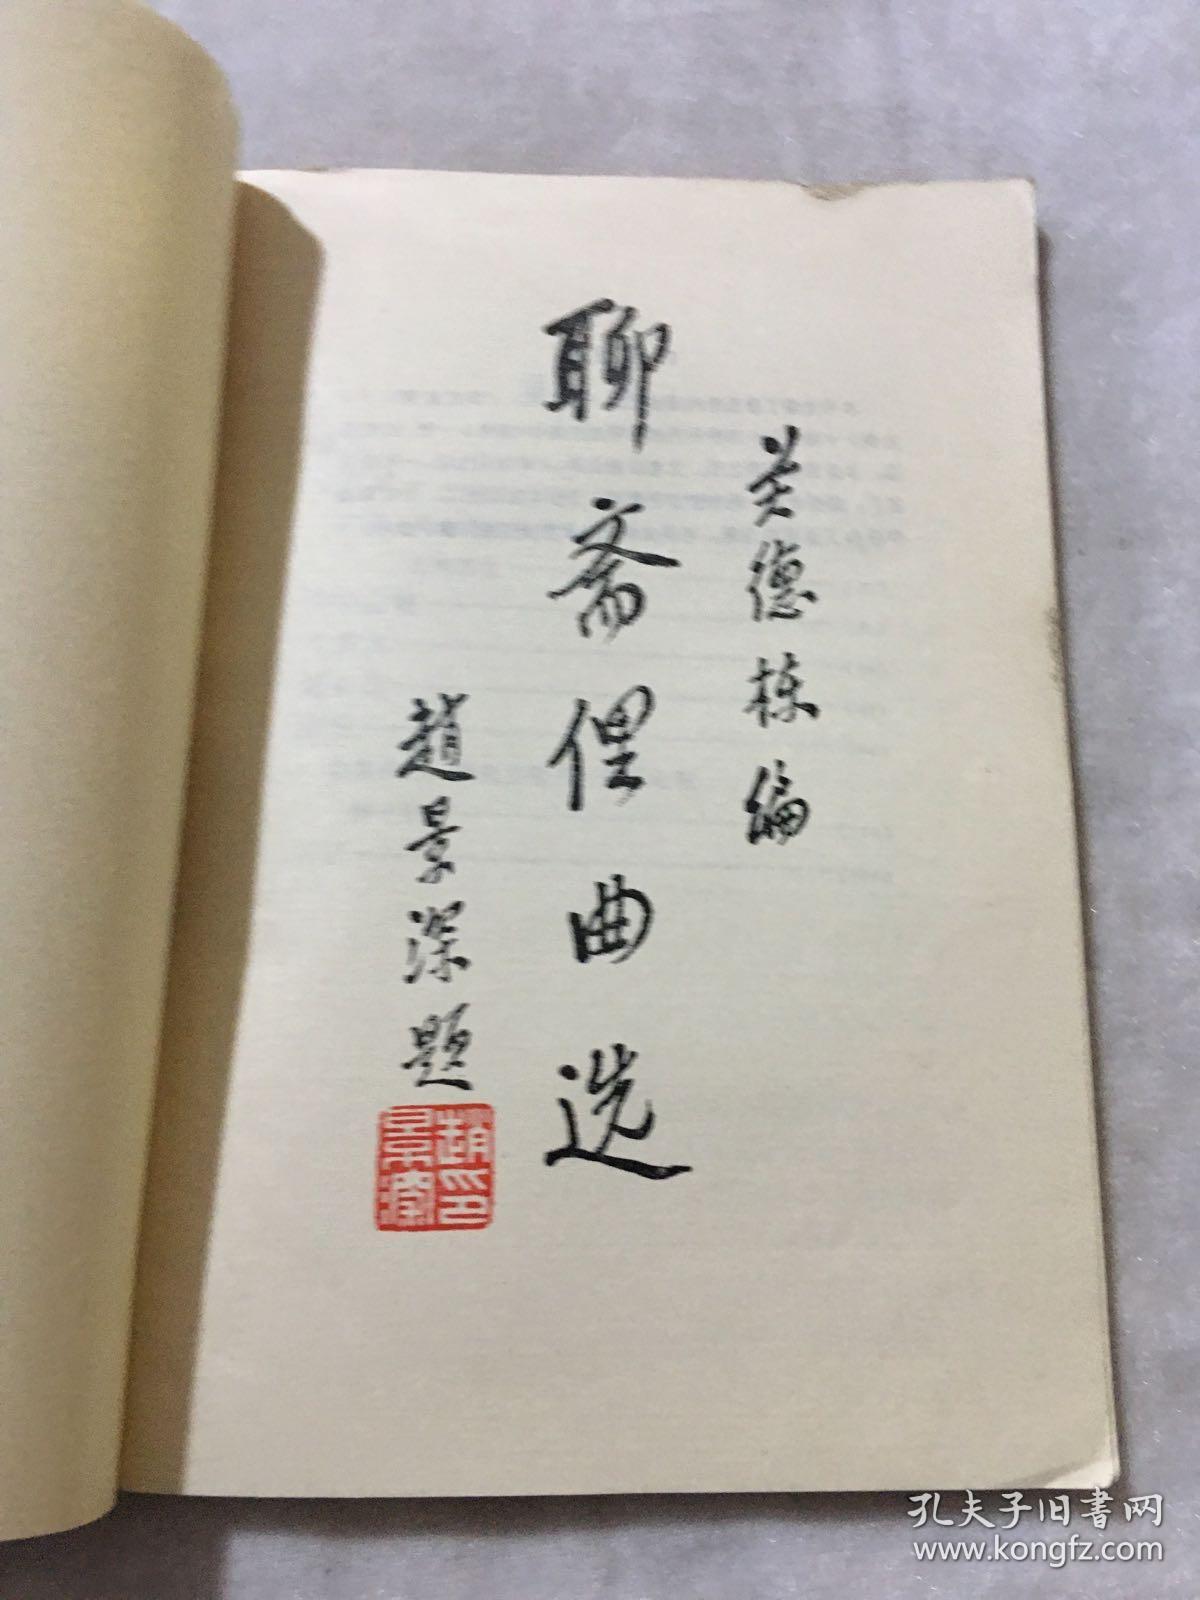 关德栋编
聊斋俚曲选
趙景深題
趙景深印
孔夫子旧書网
www.kongfz.com